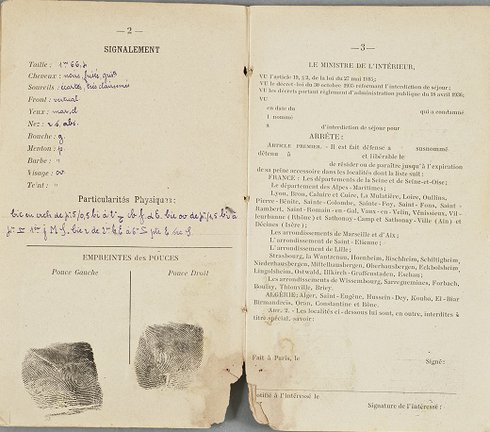 — 2 —
SIGNALEMENT
Taille : 1m 66,5
Cheveux : noirs, frisés, gris
Sourcils : écartés, très clairsemés
Front : vertical
Yeux : mar. d
Nez : abs.
Bouche : g.
Menton : p.
Barbe : "
Visage : ov
Teint : "
Particularités Physiques :
EMPREINTES des POUCES
Pouce Gauche
Pouce Droit
— 3 —
LE MINISTRE DE L'INTÉRIEUR,
VU l'article 19, § 2, de la loi du 27 mai 1885;
VU le décret-loi du 30 octobre 1935 réformant l'interdiction de séjour;
VU les décrets portant règlement d'administration publique du 18 avril 1936;
VU
en date du qui a condamné
l nommé
à d'interdiction de séjour pour
ARRÊTE :
ARTICLE PREMIER. - Il est fait défense a susnommé
détenu à et libérable le
de résider ou de paraître jusqu'à l'expiration
de sa peine accessoire dans les localités dont la liste suit :
FRANCE : Les départements de la Seine et de Seine-et-Oise;
Le département des Alpes-Maritimes;
Lyon, Bron, Caluire et Cuire, La Mulatière, Loire, Oullins,
Pierre-Bénite, Sainte-Colombe, Sainte-Foy, Saint-Fons, Saint-
Rambert, Saint-Romain-en-Gal, Vaux-en-Velin, Vénissieux, Vil-
leurbanne (Rhône) et Sathonay-Camp et Sathonay-Ville (Ain) et
Décines (Isère);
Les arrondissements de Marseille et d'Aix;
L'arrondissement de Saint-Etienne;
L'arrondissement de Lille;
Strasbourg, la Wantzenau, Hoenheim, Bischheim, Schiltigheim,
Niederhausbergen, Mittelhausbergen, Oberhausbergen, Eckbolsheim
Lingolsheim, Ostwald, Illkirch-Graffenstaden, Eschau;
Les arrondissements de Wissembourg, Sarreguemines, Forbach,
Boulay, Thionville, Briey.
ALGÉRIE: Alger, Saint-Eugène, Hussein-Dey, Kouba, El-Biar
Birmandreis, Oran, Constantine et Bône.
ART. 2. - Les localités ci-dessous lui sont, en outre, interdites à
titre spécial, savoir :
Fait à Paris, le Signé :
Notifié à l'Intéressé le
Signature de l'intéressé :